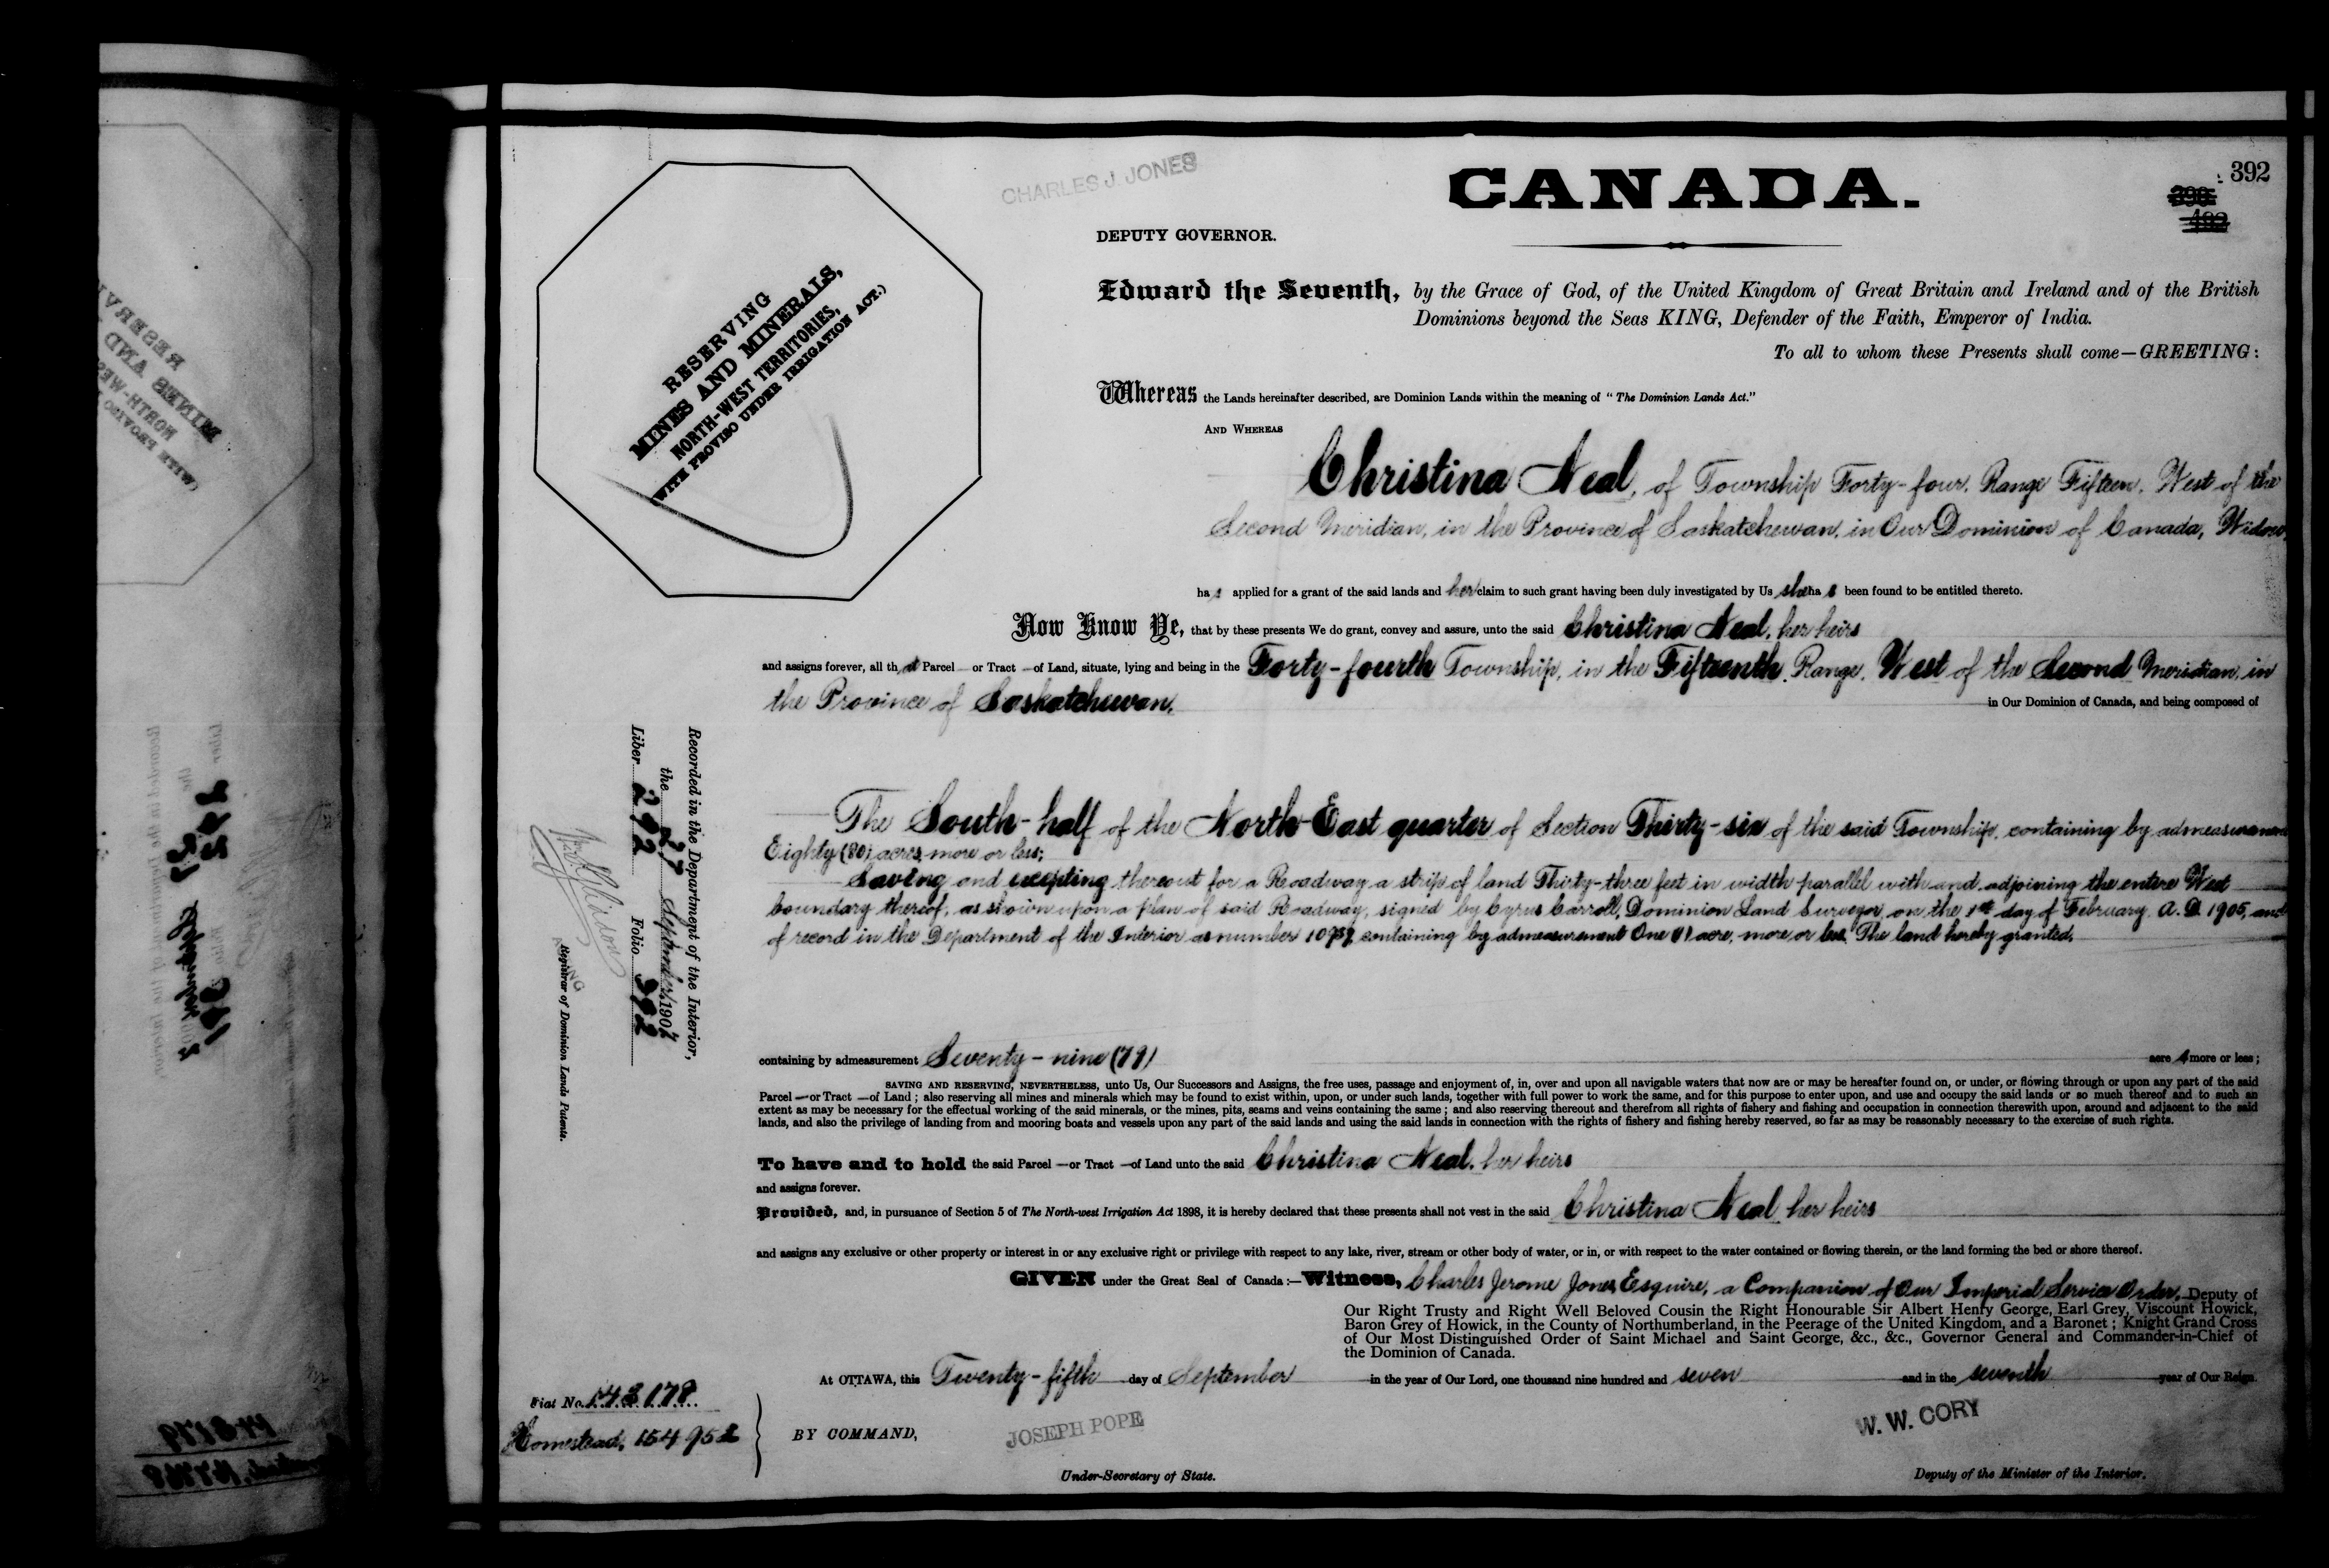 392
CHARLES J. JONES
CANADA.
DEPUTY GOVERNOR.
RESERVING
MINES AND MINERALS,
NORTH-WEST TERRITORIES,
(WITH PROVISO UNDER IRRIGATION ACT.)
Edward the Seventh, by the Grace of God, of the United Kingdom of Great Britain and Ireland and of the British
Dominions beyond the Seas KING, Defender of the Faith, Emperor of India.
To all to whom these Presents shall come—GREETING:
Whereas the Lands hereinafter described, are Dominion Lands within the meaning of "The Dominion Lands Act."
AND WHEREAS
Christina Neal, of Township Forty-four, Range Fifteen, West of the
Second Meridian, in the Province of Saskatchewan, in Our Dominion of Canada, Widow,
has applied for a grant of the said lands and her claim to such grant having been duly investigated by Us she has been found to be entitled thereto.
Now Know Ye, that by these presents We do grant, convey and assure, unto the said Christina Neal, her heirs
and assigns forever, all that Parcel or Tract of Land, situate, lying and being in the Forty-fourth Township, in the Fifteenth Range, West of the Second Meridian, in
the Province of Saskatchewan, in Our Dominion of Canada, and being composed of
The South-half of the North-East quarter of Section Thirty-six of the said Township, containing by admeasurement
Eighty (80) acres, more or less;
Saving and excepting thereout for a Roadway a strip of land Thirty-three feet in width parallel with and adjoining the entire West
boundary thereof, as shown upon a plan of said Roadway, signed by Cyrus Carroll, Dominion Land Surveyor, on the 1st day of February, A.D. 1905, and
of record in the Department of the Interior as number containing by admeasurement One (1) acre, more or less. The land hereby granted,
containing by admeasurement Seventy-nine (79) acres more or less;
SAVING AND RESERVING, NEVERTHELESS, unto Us, Our Successors and Assigns, the free uses, passage and enjoyment of, in, over and upon all navigable waters that now are or may be hereafter found on, or under, or flowing through or upon any part of the said
Parcel—or Tract—of Land; also reserving all mines and minerals which may be found to exist within, upon, or under such lands, together with full power to work the same, and for this purpose to enter upon, and use and occupy the said lands or so much thereof and to such an
extent as may be necessary for the effectual working of the said minerals, or the mines, pits, seams and veins containing the same; and also reserving thereout and therefrom all rights of fishery and fishing and occupation in connection therewith upon, around and adjacent to the said
lands, and also the privilege of landing from and mooring boats and vessels upon any part of the said lands and using the said lands in connection with the rights of fishery and fishing hereby reserved, so far as may be reasonably necessary to the exercise of such rights.
To have and to hold the said Parcel—or Tract—of Land unto the said Christina Neal, her heirs
and assigns forever.
Provided, and, in pursuance of Section 5 of The North-west Irrigation Act 1898, it is hereby declared that these presents shall not vest in the said Christina Neal, her heirs
and assigns any exclusive or other property or interest in or any exclusive right or privilege with respect to any lake, river, stream or other body of water, or in, or with respect to the water contained or flowing therein, or the land forming the bed or shore thereof.
GIVEN under the Great Seal of Canada:—Witness, Charles Jerome Jones, Esquire, a Companion of Our Imperial Service Order, Deputy of
Our Right Trusty and Right Well Beloved Cousin the Right Honourable Sir Albert Henry George, Earl Grey, Viscount Howick,
Baron Grey of Howick, in the County of Northumberland, in the Peerage of the United Kingdom, and a Baronet; Knight Grand Cross
of Our Most Distinguished Order of Saint Michael and Saint George, &c., &c., Governor General and Commander-in-Chief of
the Dominion of Canada.
At OTTAWA, this Twenty-fifth day of September in the year of Our Lord, one thousand nine hundred and seven and in the seventh year of Our Reign.
BY COMMAND,
JOSEPH POPE
Under-Secretary of State.
W. W. CORY
Deputy of the Minister of the Interior.
Fiat No. 143178
Homestead, 154952
Recorded in the Department of the Interior,
the 27 September, 1907
Liber 292 Folio 392
Registrar of Dominion Lands Patents.